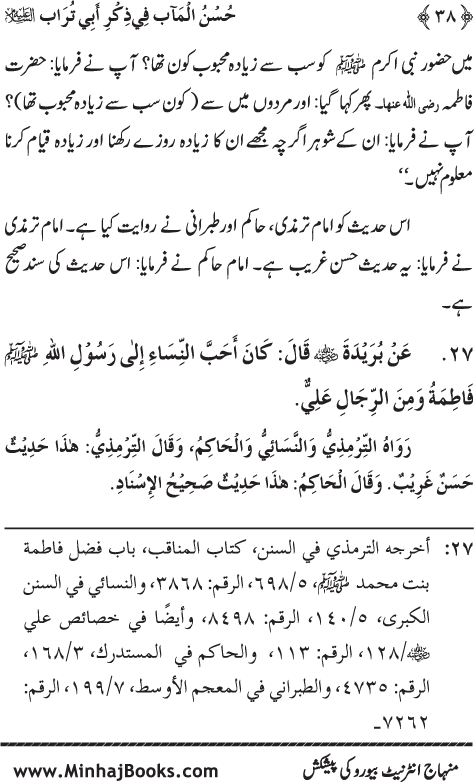 ﴿۳۸﴾ حُسْنُ الْمَآب فِي ذِكْرِ أَبِي تُرَاب علیہ السلام
میں حضور نبی اکرم ﷺ کو سب سے زیادہ محبوب کون تھا؟ آپ نے فرمایا: حضرت
فاطمہ رضی اللہ عنہا۔ پھر کہا گیا: اور مردوں میں سے (کون سب سے زیادہ محبوب تھا)؟
آپ نے فرمایا: ان کے شوہر اگرچہ مجھے ان کا زیادہ روزے رکھنا اور زیادہ قیام کرنا
معلوم نہیں۔‘‘
اس حدیث کو امام ترمذی، حاکم اور طبرانی نے روایت کیا ہے۔ امام ترمذی
نے فرمایا: یہ حدیث حسن غریب ہے۔ امام حاکم نے فرمایا: اس حدیث کی سند صحیح
ہے۔
۲۷. عَنْ بُرَيْدَةَ رضی اللہ عنہ قَالَ: كَانَ أَحَبَّ النِّسَاءِ إِلَى رَسُوْلِ اللهِ ﷺ
فَاطِمَةُ وَمِنَ الرِّجَالِ عَلِيٌّ.
رَوَاهُ التِّرْمِذِيُّ وَالنَّسَائِيُّ وَالْحَاكِمُ، وَقَالَ التِّرْمِذِيُّ: هٰذَا حَدِيْثٌ
حَسَنٌ غَرِيْبٌ. وَقَالَ الْحَاكِمُ: هٰذَا حَدِيْثٌ صَحِيْحُ الْإِسْنَادِ.
۲۷: أخرجه الترمذي في السنن، كتاب المناقب، باب فضل فاطمة
بنت محمد ﷺ، ٥/٦٩٨، الرقم: ٣٨٦٨، والنسائي في السنن
الكبرى، ٥/١٤٠، الرقم: ٨٤٩٨، وأيضًا في خصائص علي
رضی اللہ عنہ/١٢٨، الرقم: ١١٣، والحاكم في المستدرك، ٣/١٦٨،
الرقم: ٤٧٣٥، والطبراني في المعجم الأوسط، ٧/١٩٩، الرقم:
٧٢٦٢۔
منہاج انٹرنیٹ بیورو کی پیشکش www.MinhajBooks.com